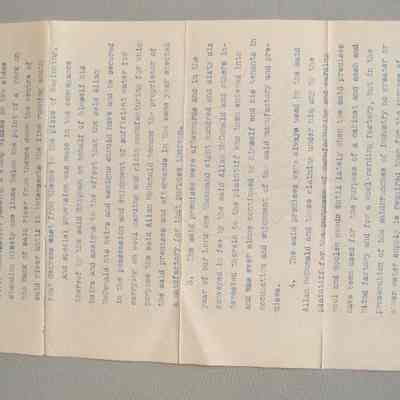 the bank of said river from thence a
said river until it intersects the line running south
four degrees east from thence to the place of beginning.
And special provision was made in the conveyance
thereof by the said Stepman on behalf of himself his
heirs and assigns to the effect that the said Allan
McDonald his heirs and assigns should have and be secured
in the possession and enjoyment of sufficient water for
carrying on wool carding and cloth manufacturing for which
purpose the said Allan McDonald became the proprietor of
the said premises and afterwards in the same year erected
a manufactory for that purpose thereon.
3. The said premises were afterwards and in the
year of our Lord one thousand eight hundred and sixty six
conveyed in fee by the said Allan McDonald and others in-
terested therein to the plaintiff who then entered into
and has ever since continued by himself and his tenants in
occupation and enjoyment of the said manufactory and pre-
mises.
4. The said premises were always used by the said
Allan McDonald and those claiming under him and by the
plaintiff for the purposes of manufacturing and carding
wool and woolen goods until lately when the said premises
have been used for the purpose of a cabinet and sash and
blind factory and for a wool-carding factory, but in the
prosecution of the said industry no greater or
other water supply is required than for the purpose of